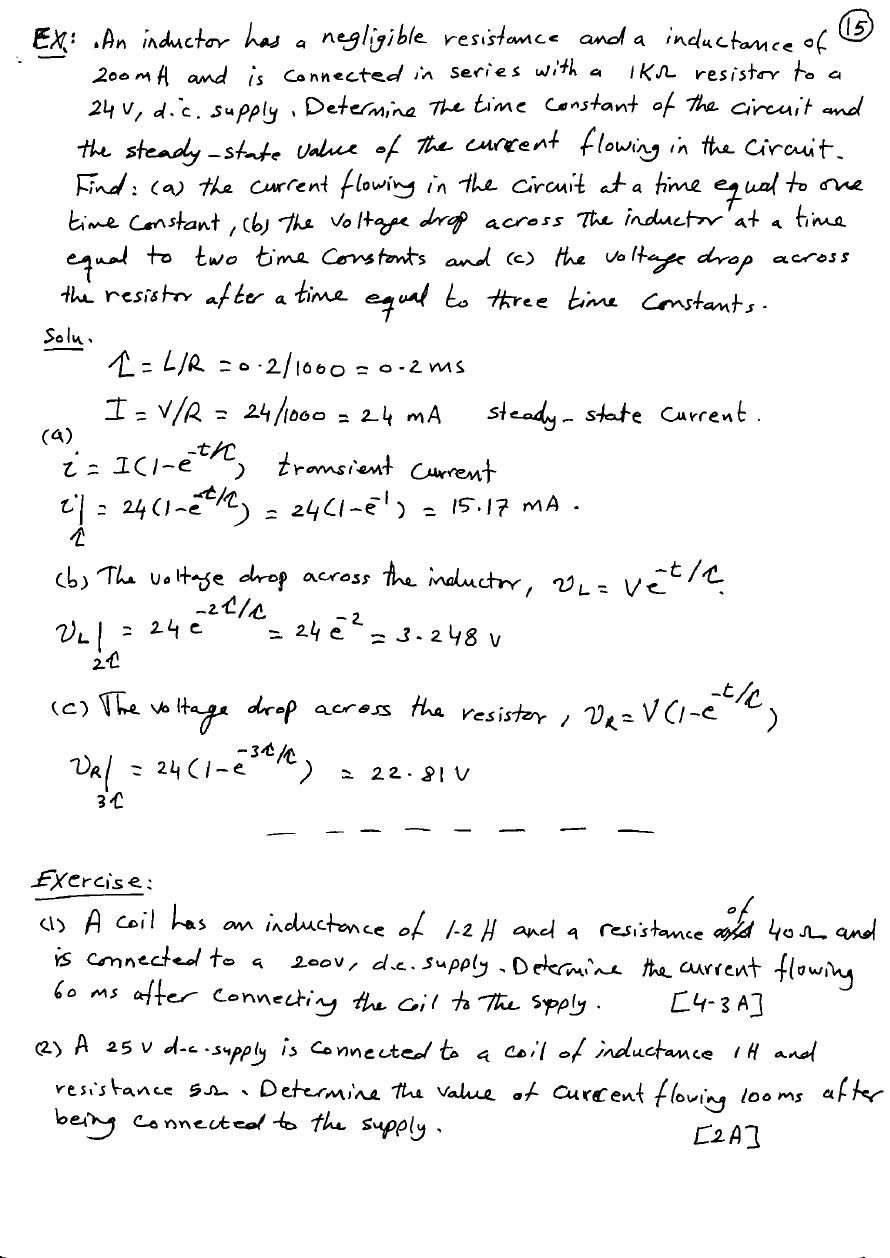 15
EX: . An inductor has a negligible resistance and a inductance of
200mH and is connected in series with a 1KΩ resistor to a
24 V, d.c. supply. Determine The time constant of the circuit and
the steady-state value of the current flowing in the circuit.
Find: (a) the current flowing in the circuit at a time equal to one
time constant, (b) The voltage drop across The inductor at a time
equal to two time constants and (c) the voltage drop across
the resistor after a time equal to three time constants.
Solu.
τ = L/R = 0.2/1000 = 0.2 ms
I = V/R = 24/1000 = 24 mA steady-state current.
(a)
i = I(1-e^-t/τ) transient current
i|τ = 24(1-e^-τ/τ) = 24(1-e^-1) = 15.17 mA.
(b) The voltage drop across the inductor, VL = Ve^-t/τ.
VL|2τ = 24 e^-2τ/τ = 24 e^-2 = 3.248 V
(c) The voltage drop across the resistor, VR = V(1-e^-t/τ)
VR|3τ = 24(1-e^-3τ/τ) = 22.81 V
Exercise:
(1) A coil has an inductance of 1.2 H and a resistance of 40Ω and
is connected to a 200V, d.c. supply. Determine the current flowing
60 ms after connecting the coil to The supply. [4.3A]
(2) A 25 V d.c. supply is connected to a coil of inductance 1H and
resistance 5Ω. Determine the value of current flowing 100ms after
being connected to the supply. [2A]